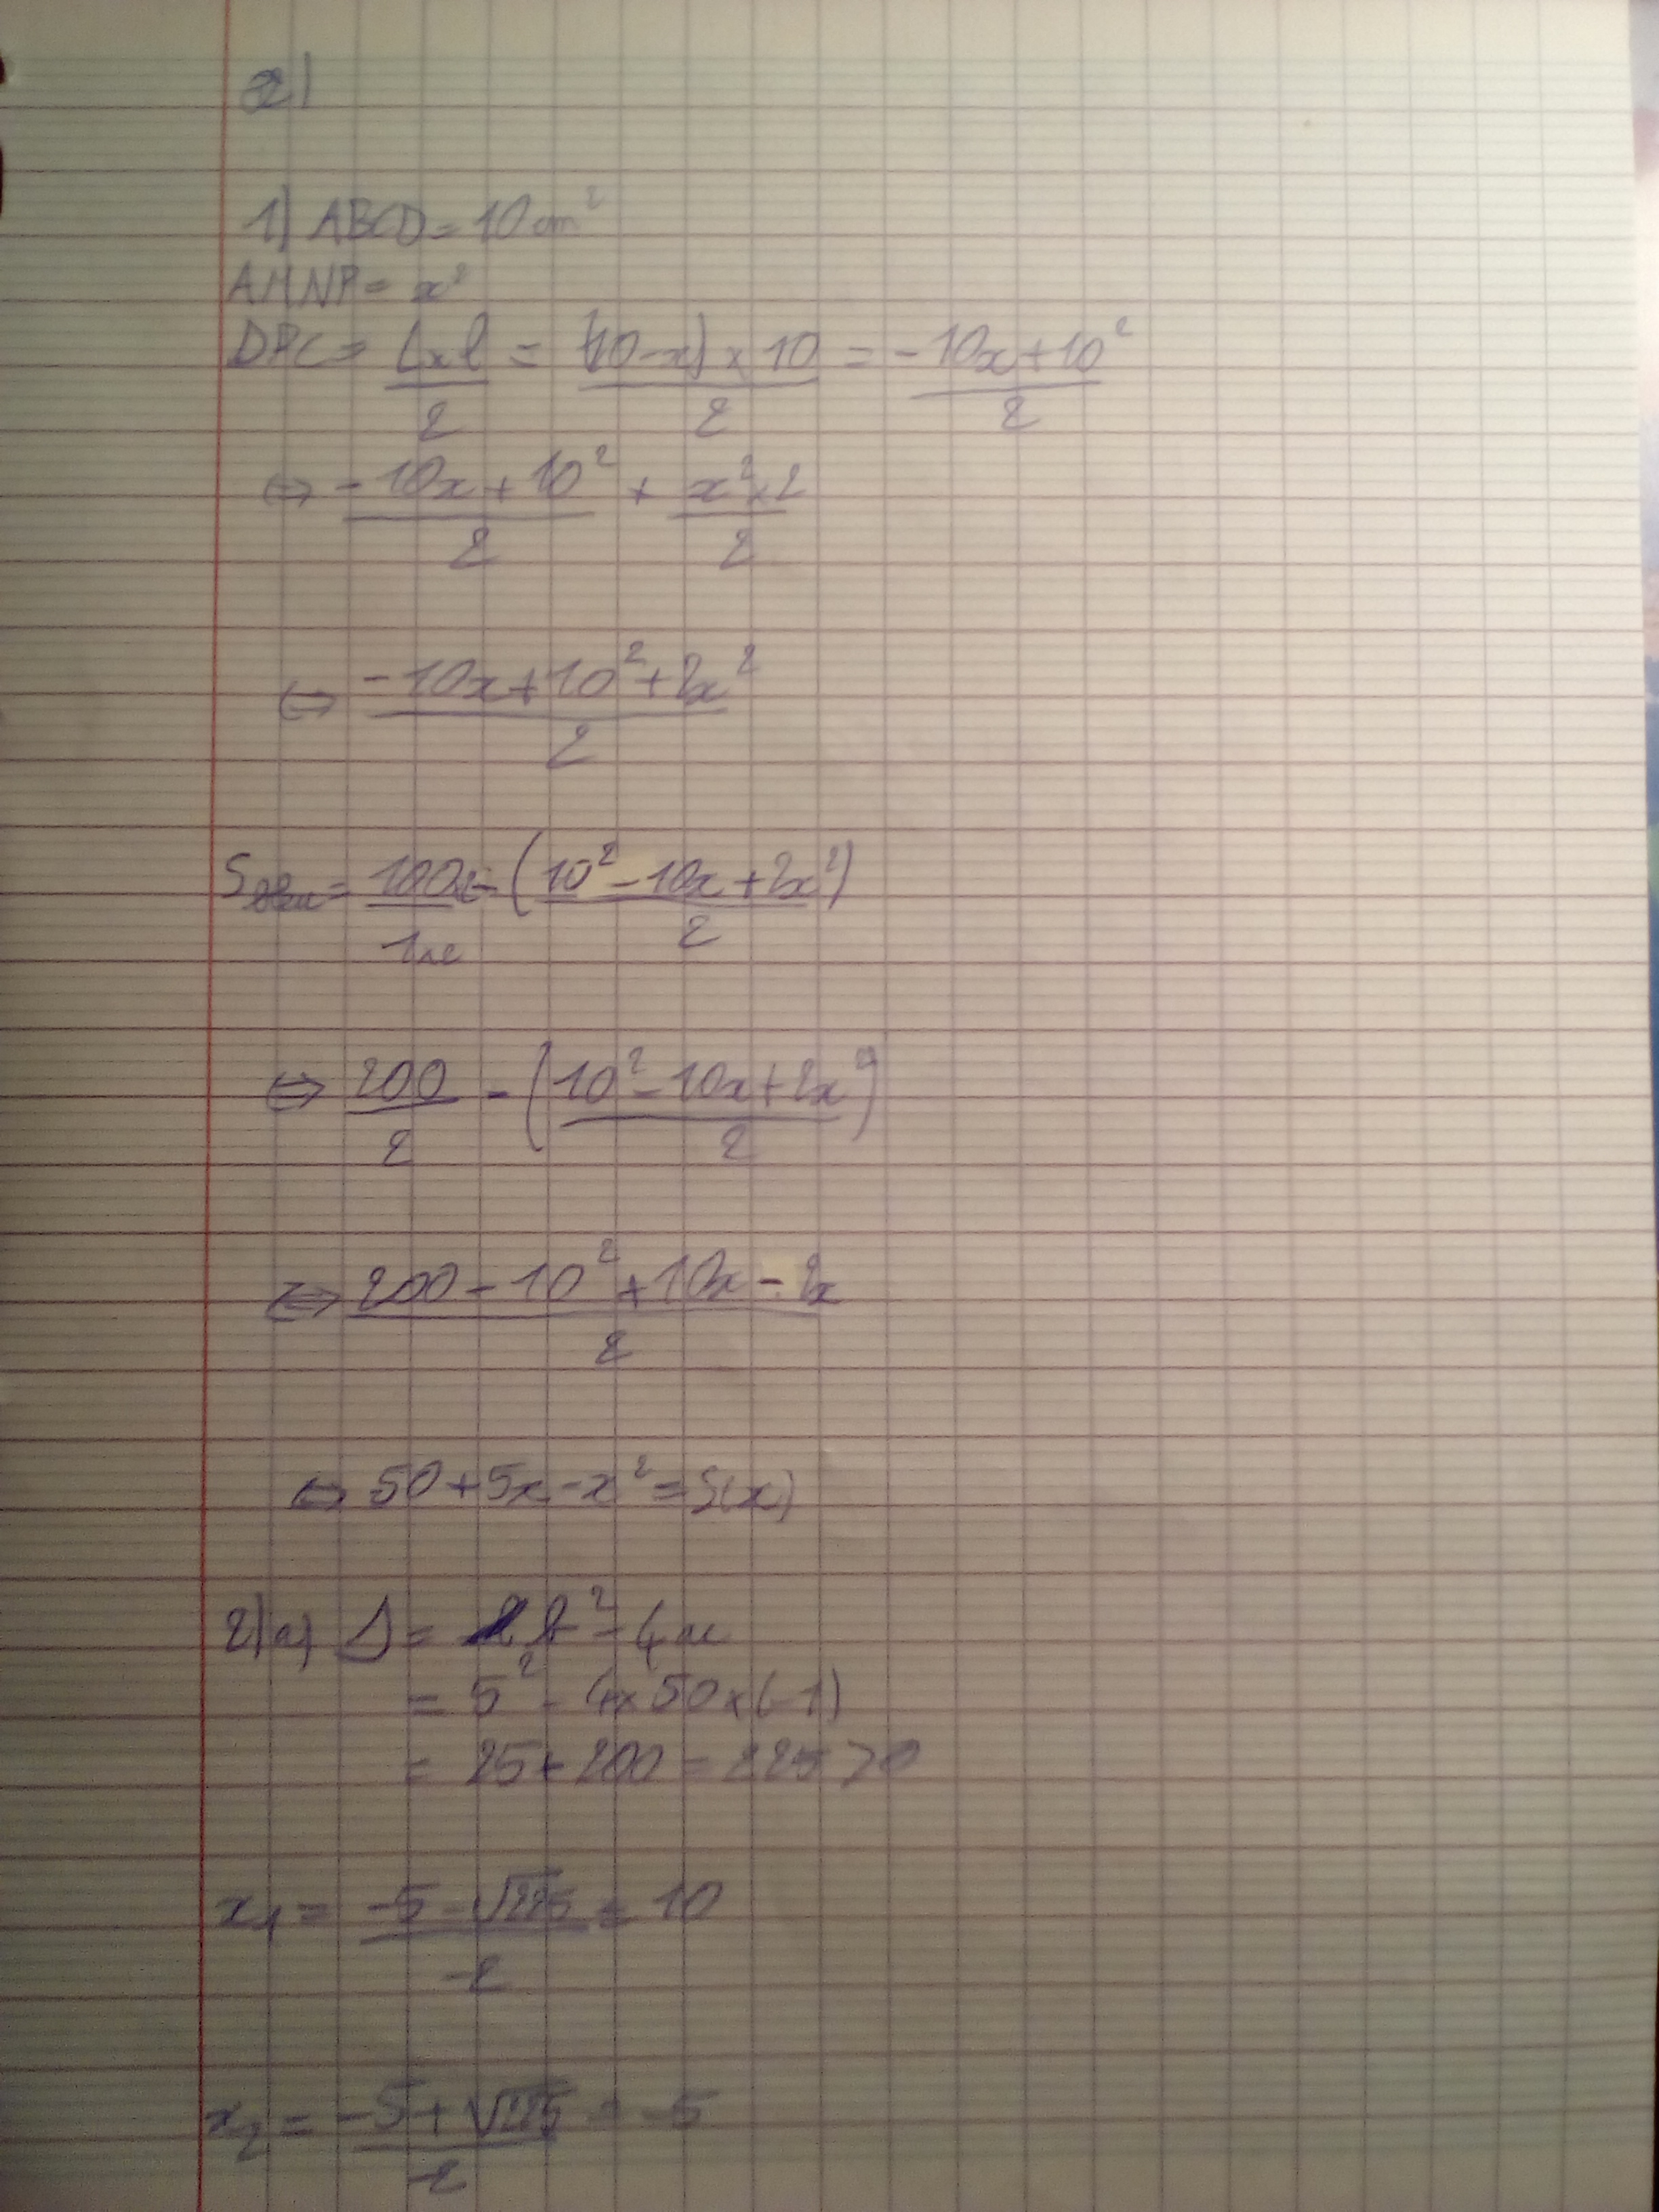 1) ABCD = 10 cm²
AMNP = x²
DPC = L×l/2 = (10-x)×10/2 = -10x+10²/2
⇔ -10x+10²/2 + x²×2/2
⇔ -10x+10²+2x²/2
= 100×2/1×2 - (10²-10x+2x²/2)
⇔ 200/2 - (10²-10x+2x²/2)
⇔ 200-10²+10x-2x/2
⇔ 50+5x-x² = S(x)
2) a) Δ = b²-4ac
= 5²-4×50×(-1)
= 25+200 = 225 >0
x₁ = -5-√225/-2 = 10
x₂ = -5+√225/-2 = -5